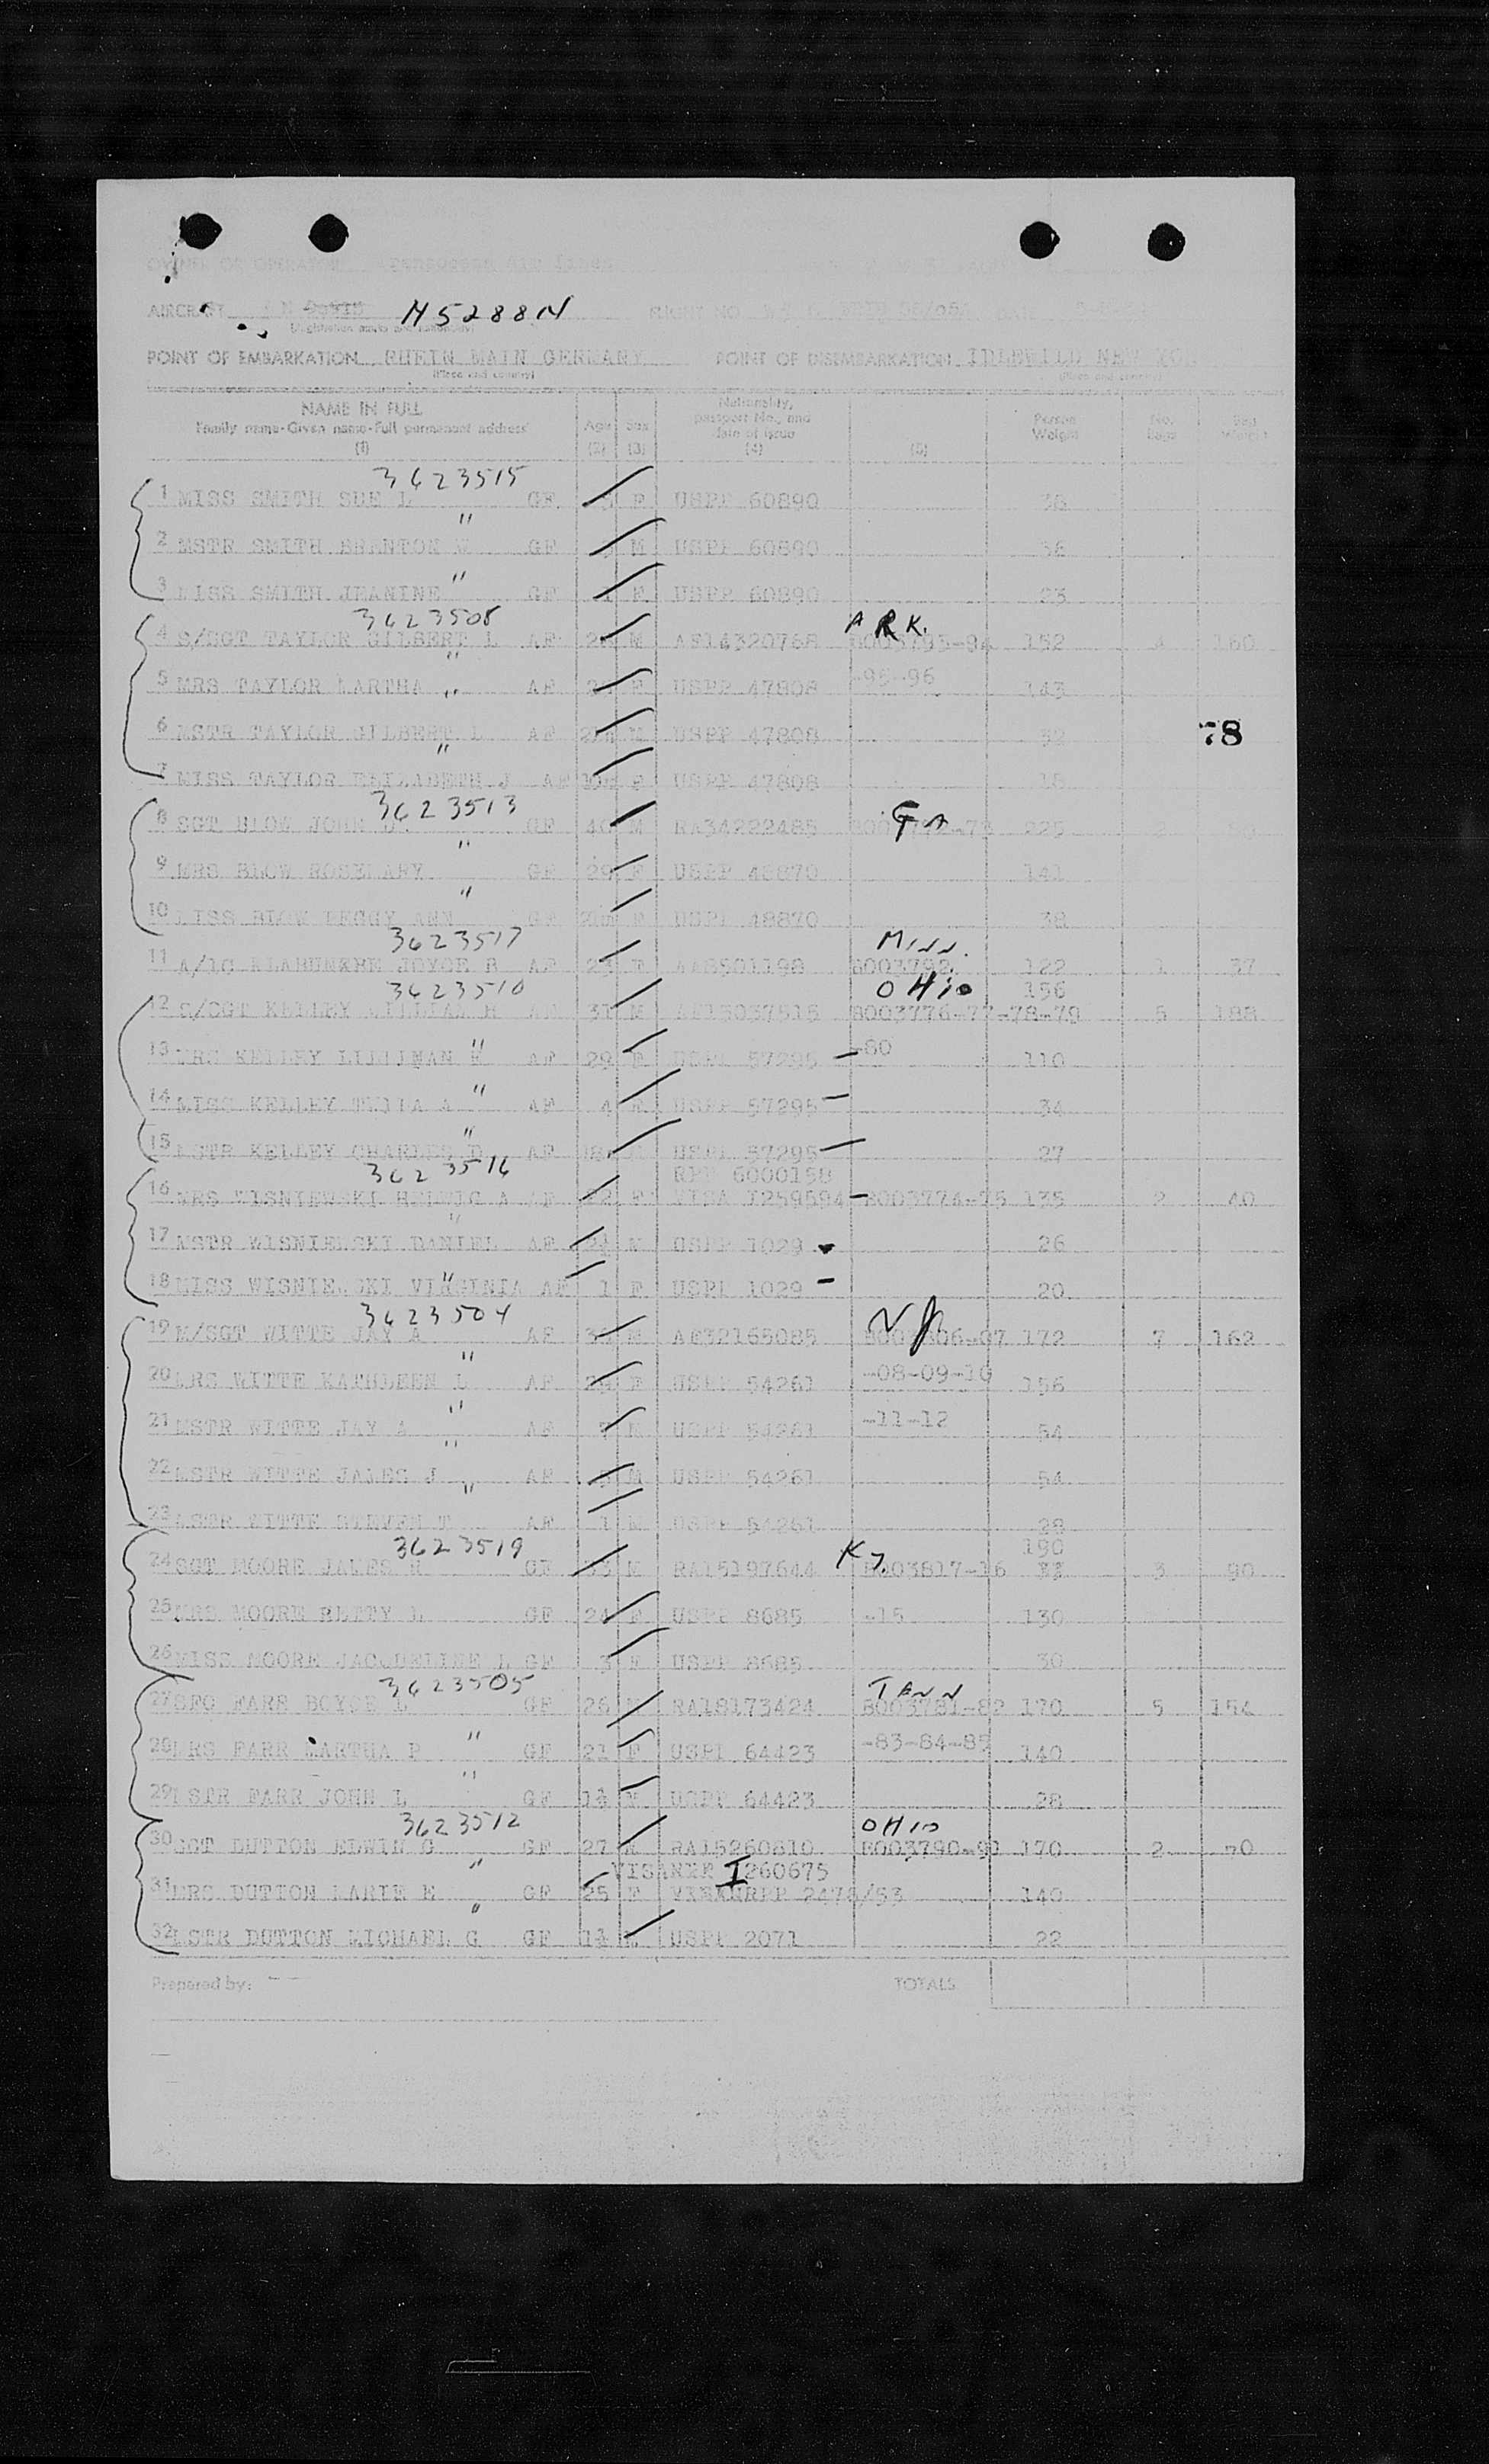 OWNER OR OPERATOR
AIRCRAFT N5288N FLIGHT NO.
(Registration marks and nationality)
POINT OF EMBARKATION RHEIN MAIN GERMANY POINT OF DISEMBARKATION IDLEWILD NEW YORK
(Place and country) (Place and country)
NAME IN FULL Family name-Given name-Full permanent address (1) Age (2) Sex (3) Nationality, passport No., and date of issue (4) (5) Person Weight No. Bags Bag Weight
3623515
1 MISS SMITH SUE L GF F USPP 60890 38
"
2 MSTR SMITH BRENTON W GF M USPP 60890 36
"
3 MISS SMITH JEANINE GF F USPP 60890 23
3623508 ARK.
4 S/SGT TAYLOR GILBERT L AF M AF14320768 B003793-94 152 4 160
"
5 MRS TAYLOR MARTHA AF F USPP 47808 -95-96 143
"
6 MSTR TAYLOR GILBERT L AF M USPP 47808 32
78
"
7 MISS TAYLOR ELIZABETH J AF 10m F USPP 47808 18
3623513 Ga
8 SGT BLOW JOHN GF 40 M RA34222485 225 2
"
9 MRS BLOW ROSEMARY GF 29 F USPP 48870 141
"
10 MISS BLOW PEGGY ANN GF F USPP 48870 38
3623517 Minn.
11 A/1C JOYCE B AF 23 F AA8501198 B003792 122 1 37
3623510 OHio 156
12 S/SGT KELLEY WILLIAM H AF 31 M AF15057515 B003776-77-78-79 5 188
"
13 MRS KELLEY LILLIAN E AF 29 F USPP 57295 -80 110
"
14 MISS KELLEY A AF 4 F USPP 57295 34
"
15 MSTR KELLEY CHARLES D AF USPP 57295 27
3623516 RPP 6000158
16 MRS WISNIEWSKI HEDWIG A AF 22 F VISA I259594 B003774-75 135 2 40
"
17 MSTR WISNIEWSKI DANIEL AF M USPP 1029 26
"
18 MISS WISNIEWSKI VIRGINIA AF 1 F USPP 1029 20
3623504 NJ
19 M/SGT WITTE JAY A AF M AF32165085 B003806-07 172 7 162
"
20 MRS WITTE KATHLEEN L AF F USPP 54261 -08-09-10 156
"
21 MSTR WITTE JAY A AF 7 M USPP 54261 -11-12 54
"
22 MSTR WITTE JAMES J AF M USPP 54261 54
"
23 MSTR WITTE STEVEN T AF 1 M USPP 54261 28
3623519 Ky 190
24 SGT MOORE JAMES R GF M RA15197644 B003817-16 3 90
25 MRS MOORE BETTY L GF 24 F USPP 8685 -15 130
26 MISS MOORE JACQUELINE L GF 3 F USPP 8685 30
3623505 TENN
27 SFC FARR BOYCE L GF 26 M RA18173424 B003781-82 170 5 154
"
28 MRS FARR MARTHA P GF 21 F USPP 64423 -83-84-85 140
"
29 MSTR FARR JOHN L GF 1½ M USPP 64423 28
3623512 OHio
30 SGT DUTTON EDWIN G GF 27 M RA15260810 B003790-91 170 2 70
" I260675
31 MRS DUTTON MARIE E GF 25 F 2476/53 140
"
32 MSTR DUTTON MICHAEL G GF 1½ M USPP 2071 22
Prepared by: TOTALS